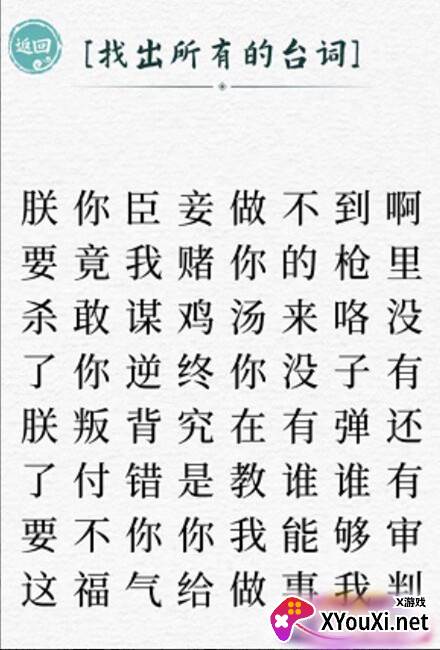 返回
[找出所有的台词]
朕你臣妾做不到啊
要竟我赌你的枪里
杀敢谋鸡汤来咯没
了你逆终你没子有
朕叛背究在有弹还
了付错是教谁谁有
要不你你我能够审
这福气给做事我判
X游戏
XYouXi.net